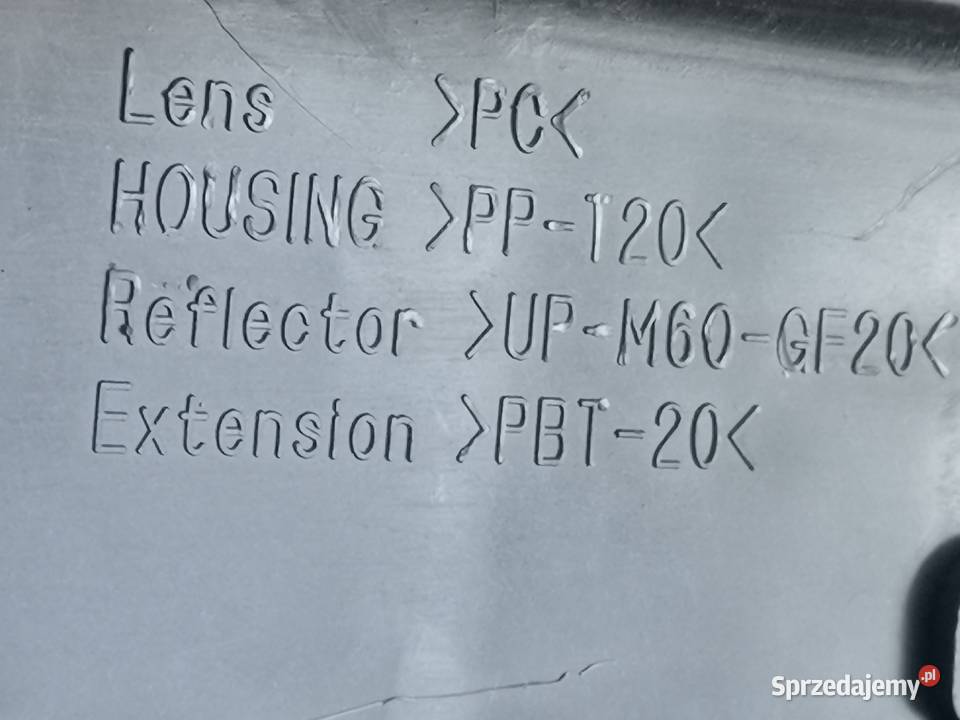 Lens >PC<
HOUSING >PP-T20<
Reflector >UP-M60-GF20<
Extension >PBT-20<
Sprzedajemy.pl